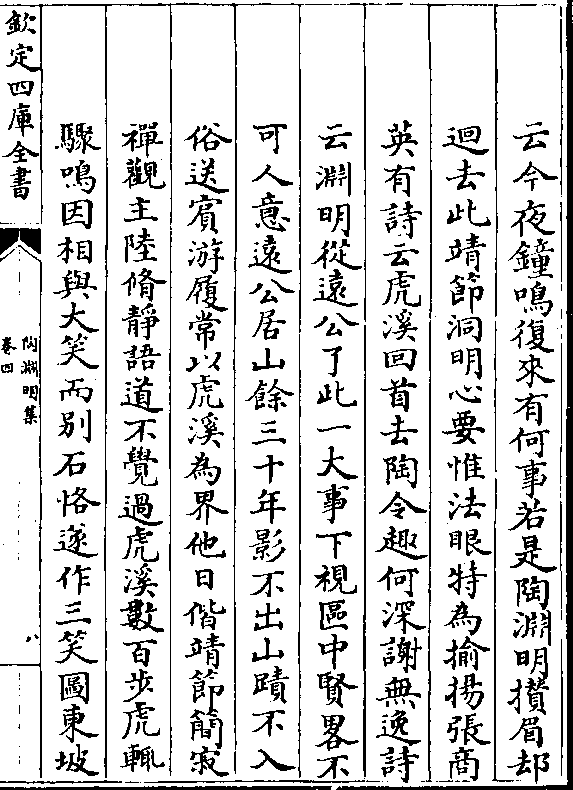 云今夜鐘鳴復來有何事若是陶淵明攢眉却
迴去此靖節洞明心要惟法眼特為揄揚張商
英有詩云虎溪回首去陶令趣何深謝無逸詩
云淵明從遠公了此一大事下視區中賢畧不
可人意遠公居山餘三十年影不出山蹟不入
俗送賓游履常以虎溪為界他日偕靖節簡寂
禪觀主陸脩靜語道不覺過虎溪數百步虎輒
驟鳴因相與大笑而別石恪遂作三笑圖東坡
欽定四庫全書
陶淵明集
卷四
八